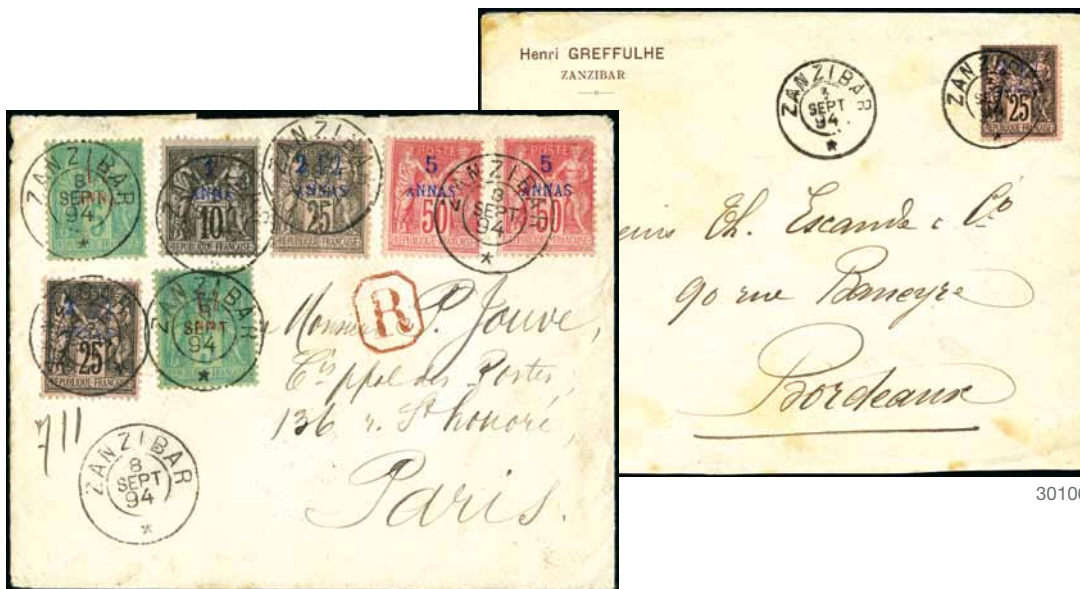 Henri GREFFULHE
ZANZIBAR
ZANZIBAR
SEPT
94
ZANZIBAR
25
REPUBLIQUE FRANÇAISE
Th. Escande & Cº
90 rue
Bordeaux
30100
ZANZIBAR
8
SEPT
94
1
ANNA
10
REPUBLIQUE FRANÇAISE
ZANZIBAR
2 1/2
25
REPUBLIQUE FRANÇAISE
POSTE
5
ANNAS
50
REPUBLIQUE FRANÇAISE
5
ANNAS
50
REPUBLIQUE FRANÇAISE
ZANZIBAR
8
SEPT
94
25
REPUBLIQUE FRANÇAISE
ZANZIBAR
SEPT
94
R
Monsieur P. Jouve,
des Postes,
136 r. St honoré,
Paris.
711
ZANZIBAR
8
SEPT
94